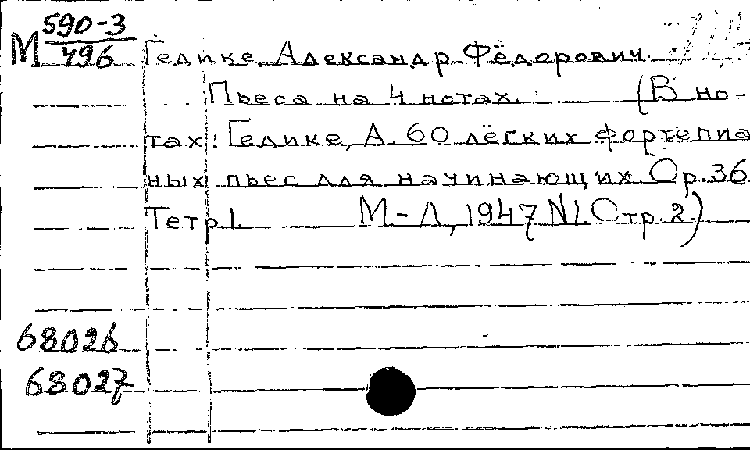 М 590-3/496
Гедике, Александр Фёдорович.
Пьеса на 4 нотах. (В но-
тах: Гедике, А. 60 лёгких фортепиа
ных пьес для начинающих Ор.36
Тетр 1. М-Л, 1947 N1 Стр. 2)
68026
68027